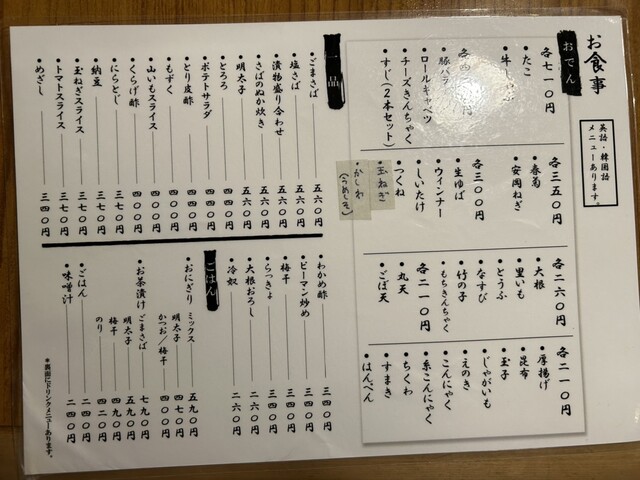 お食事
英語・韓国語
メニューあります。
おでん
各七一〇円
・たこ
・豚バラ
・ロールキャベツ
・チーズきんちゃく
・すじ(2本セット)
各三五〇円
・春菊
・安岡ねぎ
各三〇〇円
・生ゆば
・ウィンナー
・しいたけ
・つくね
・玉ねぎ
・かしわ
(うめしそ)
各二六〇円
・大根
・里いも
・とうふ
・なすび
・竹の子
・もちきんちゃく
各二一〇円
・丸天
・ごぼ天
各二一〇円
・厚揚げ
・昆布
・玉子
・じゃがいも
・えのき
・こんにゃく
・糸こんにゃく
・ちくわ
・すまき
・はんぺん
一品
・ごまさば 五六〇円
・塩さば 五六〇円
・漬物盛り合わせ 五六〇円
・さばのぬか炊き 五六〇円
・明太子 五六〇円
・とろろ 四四〇円
・ポテトサラダ 四四〇円
・とり皮酢 四〇〇円
・もずく 四〇〇円
・山いもスライス 四〇〇円
・くらげ酢 四〇〇円
・にらとじ 三七〇円
・納豆 三七〇円
・玉ねぎスライス 三七〇円
・トマトスライス 三七〇円
・めざし 三四〇円
・わかめ酢 三四〇円
・ピーマン炒め 三四〇円
・梅干 三四〇円
・らっきょ 三四〇円
・大根おろし 二六〇円
・冷奴 二六〇円
ごはん
・おにぎり ミックス 五九〇円
明太子 四七〇円
かつお/梅干 四〇〇円
・お茶漬け ごまさば 七九〇円
明太子 五九〇円
梅干 四九〇円
のり 四二〇円
・ごはん 二四〇円
・味噌汁 二四〇円
*裏面にドリンクメニューあります。